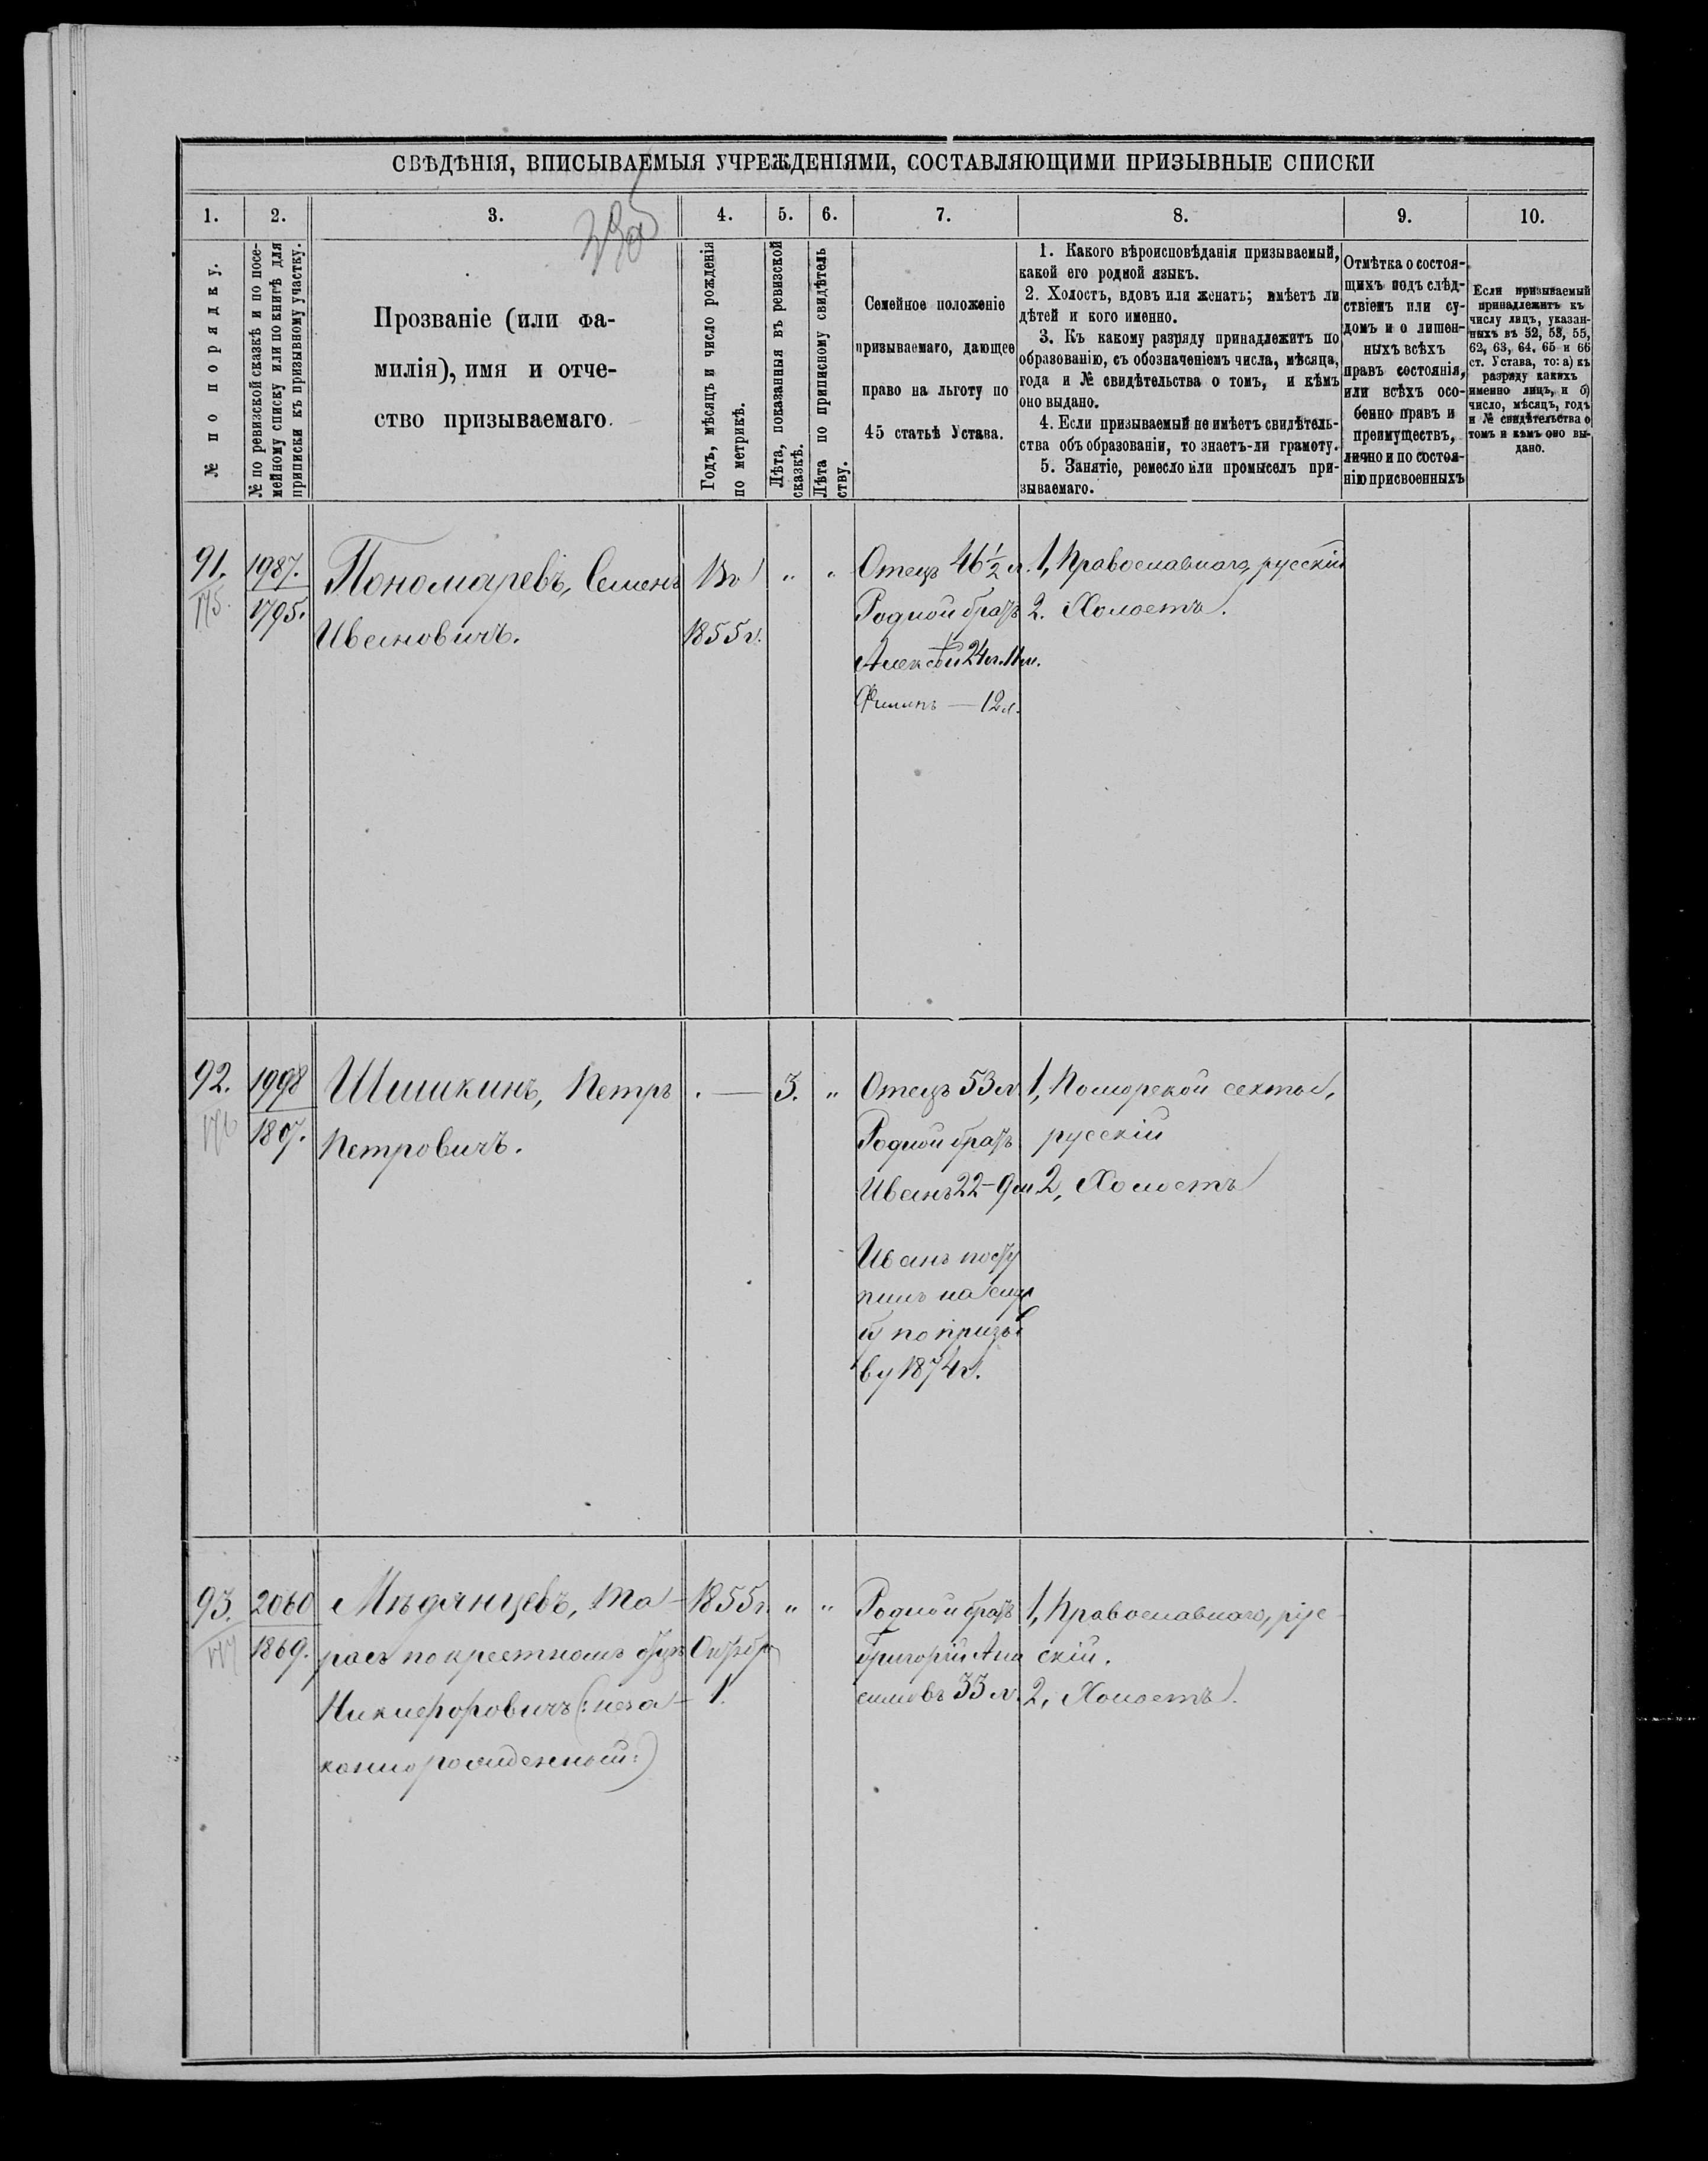 СВѢДѢНІЯ, ВПИСЫВАЕМЫЯ УЧРЕЖДЕНІЯМИ, СОСТАВЛЯЮЩИМИ ПРИЗЫВНЫЕ СПИСКИ
1. 2. 3. 4. 5. 6. 7. 8. 9. 10.
№ по порядку.
№ по ревизской сказкѣ и по посе-
мейному списку или по книгѣ для
приписки къ призывному участку.
Прозваніе (или фа-
милія), имя и отче-
ство призываемаго.
Годъ, мѣсяцъ и число рожденія
по метрикѣ.
Лѣта, показанныя въ ревизской
сказкѣ.
Лѣта по приписному свидѣтель
ству.
Семейное положеніе
призываемаго, дающее
право на льготу по
45 статьѣ Устава.
1. Какого вѣроисповѣданія призываемый,
какой его родной языкъ.
2. Холостъ, вдовъ или женатъ; имѣетъ ли
дѣтей и кого именно.
3. Къ какому разряду принадлежитъ по
образованію, съ обозначеніемъ числа, мѣсяца,
года и № свидѣтельства о томъ, и кѣмъ
оно выдано.
4. Если призываемый не имѣетъ свидѣтель-
ства объ образованіи, то знаетъ-ли грамоту.
5. Занятіе, ремесло или промыселъ при-
зываемаго.
Отмѣтка о состоя-
щихъ подъ слѣд-
ствіемъ или су-
домъ и о лишен-
ныхъ всѣхъ
правъ состоянія,
или всѣхъ осо-
бенно правъ и
преимуществъ,
лично и по состоя-
нію присвоенныхъ
Если призываемый
принадлежитъ къ
числу лицъ, указан-
ныхъ въ 52, 53, 55,
62, 63, 64, 65 и 66
ст. Устава, то: а) къ
разряду какихъ
именно лицъ, и б)
число, мѣсяцъ, годъ
и № свидѣтельства о
томъ и кѣмъ оно вы-
дано.
91.
175.
1987.
1795.
Пономаревъ, Семенъ
Ивановичъ.
Въ
1855 г.
" "
Отецъ 46 ½ л.
Родной братъ
Алексѣй 24 л. 11 м.
Филипъ — 12 л.
1, Православнаго, русскій
2. Холостъ.
92.
176
1998
1807.
Шишкинъ, Петръ
Петровичъ.
. — 3. "
Отецъ 53 л.
Родной братъ
Иванъ 22 - 9 м
Иванъ посту
пилъ на служ
бу по призы
ву 1874 г.
1, Поморской секты,
русскій
2, Холостъ
93.
177
2060
1869.
Мѣдянцевъ, Та-
расъ по крестномъ отцѣ
Никифоровичъ (: неза-
коннорожденный:)
1855 г.
Октября
1.
" "
Родной братъ
Григорій Ани
симовъ 33 л.
1, Православнаго, рус-
скій.
2, Холостъ.